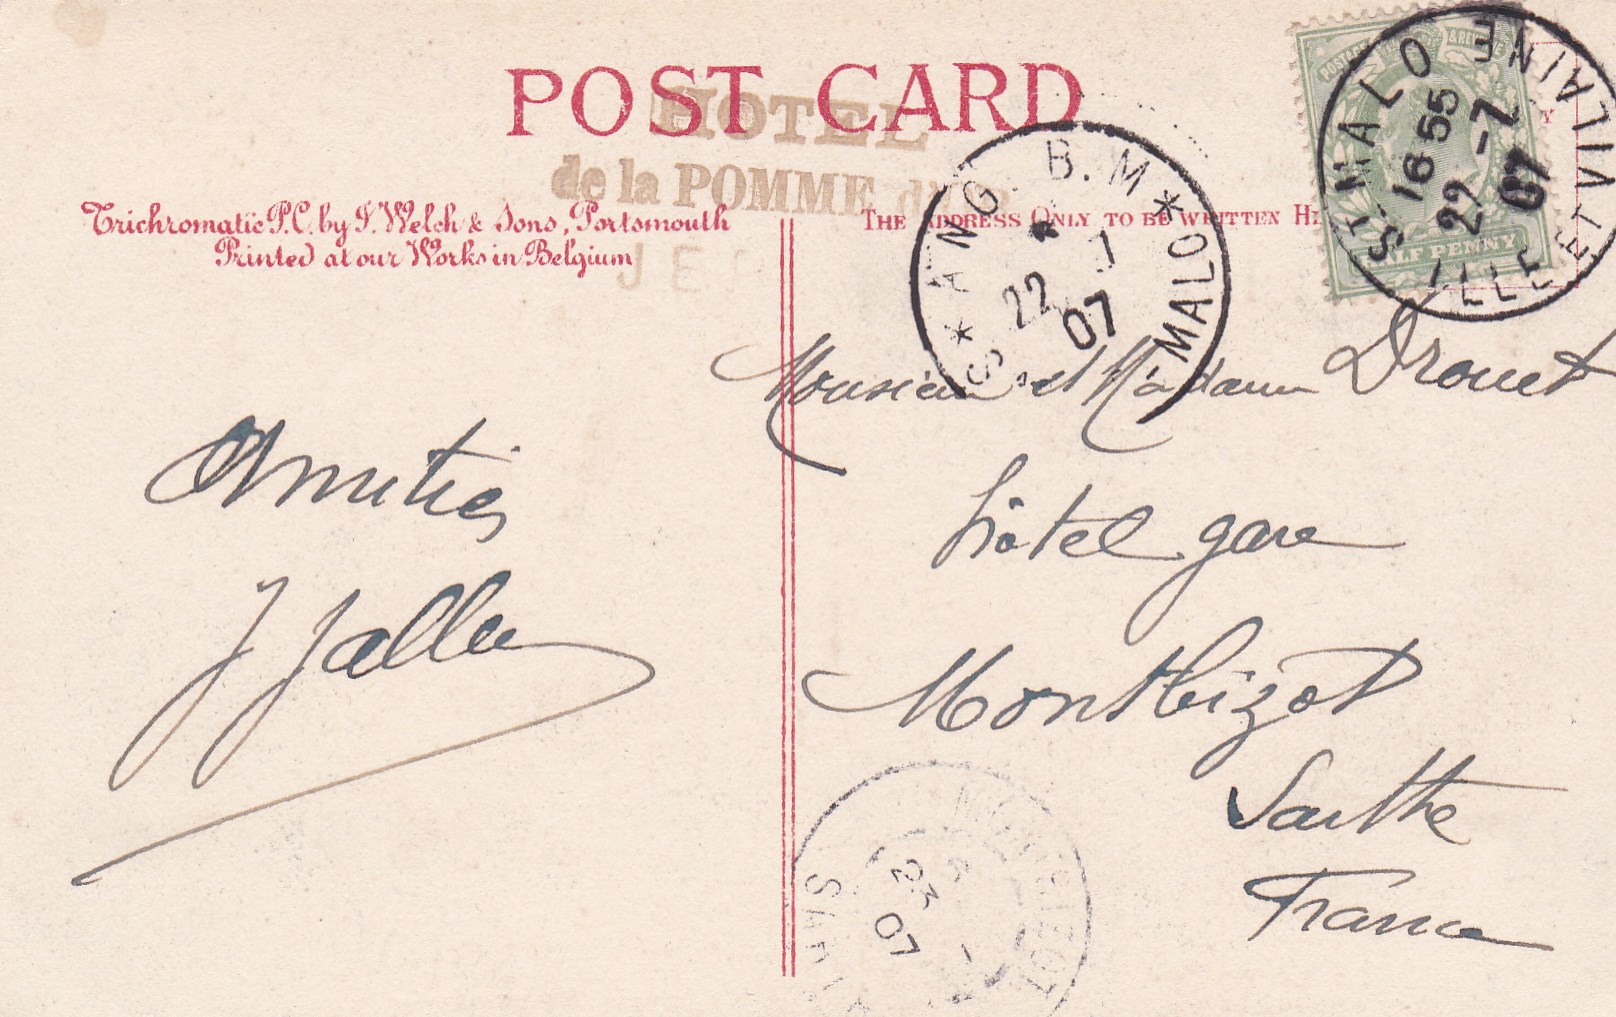 POST CARD
HOTEL
de la POMME d'OR
JE
Trichromatic P.C. by J. Welch & Sons, Portsmouth
Printed at our Works in Belgium
THE ADDRESS ONLY TO BE WRITTEN
POSTAGE & REVENUE
HALF PENNY
ST MALO
ILLE ET VILAINE
16 55
22 - 7
07
ANG. B. M
ST MALO
22 7
07
Monsieur et Madame Drouet
hôtel gare
Montbizot
Sarthe
France
Amitiés
J Jallu
MONTBIZOT
SARTHE
23
07